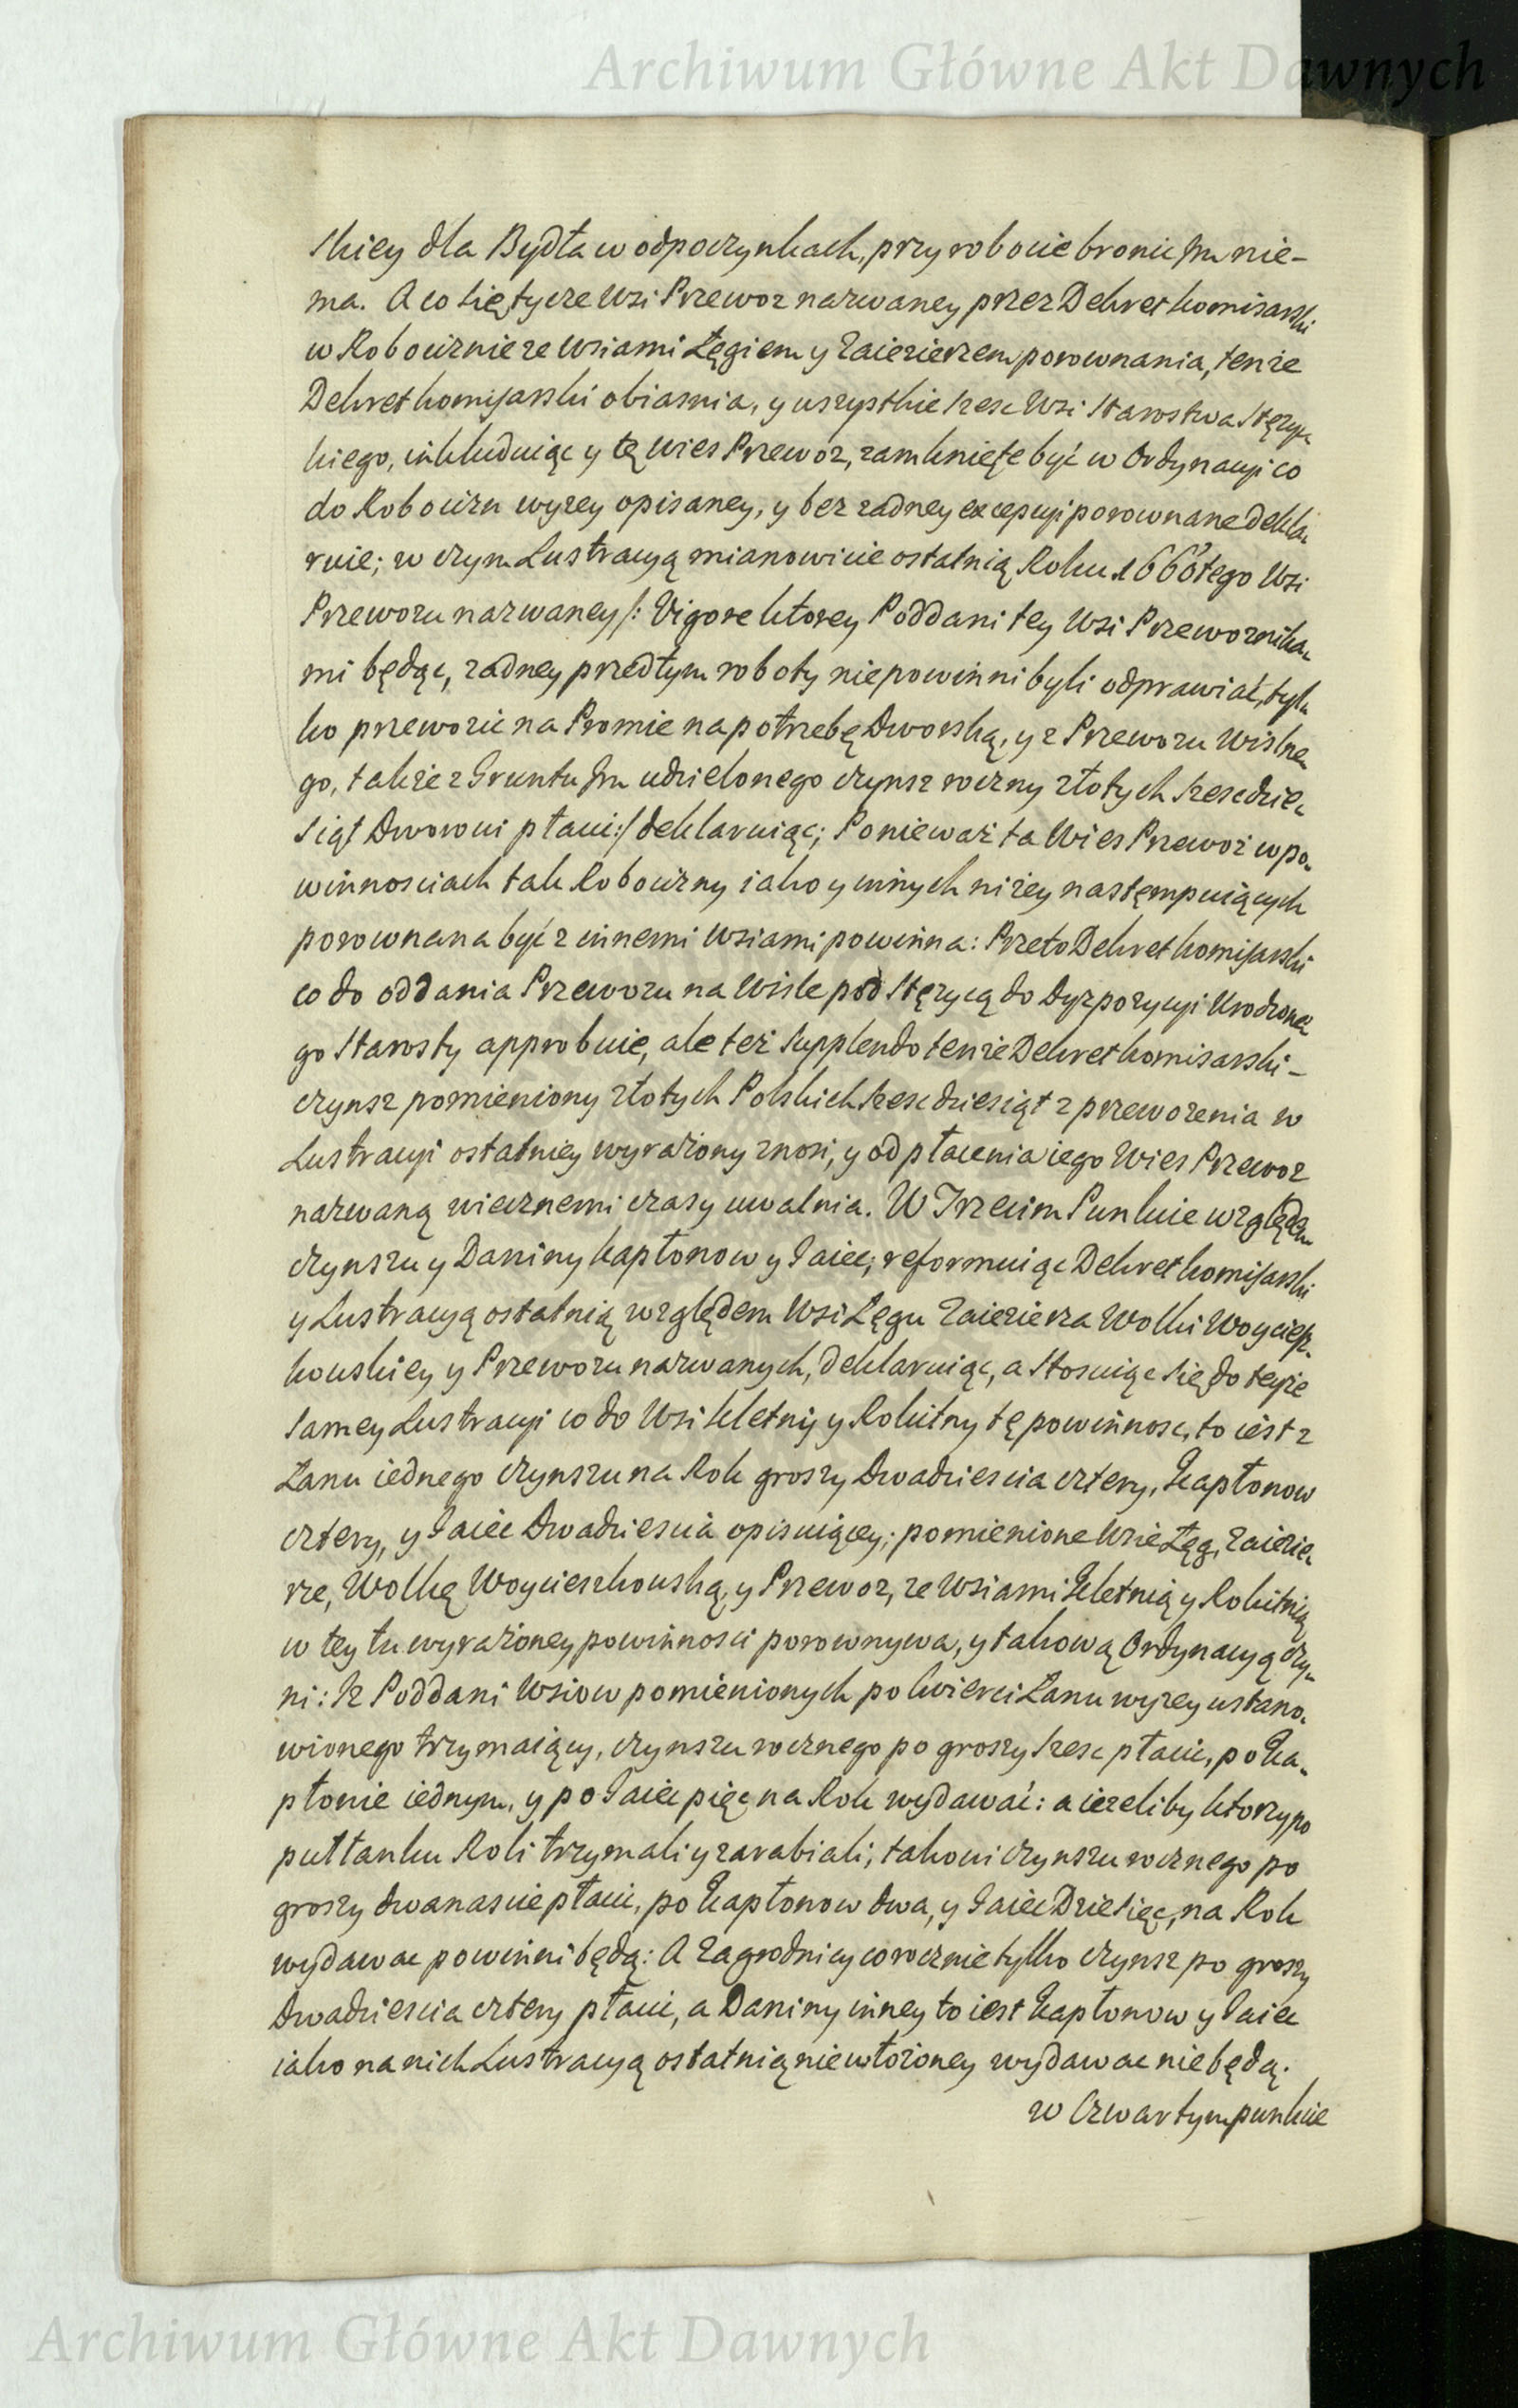 Archiwum Główne Akt Dawnych
skiey dla Bydła w odpoczynkach, przy robocie bronic Im nie-
ma. A co się tycze Wsi Przewoz nazwaney przez Dekret komisarski
w Robociznie ze Wsiami Łęgiem y Zaiezierzem porownania, tenze
Dekret komisarski obiasnia, y wszystkie szesc Wsi Starostwa Stęzyc
kiego, inkluduiąc y tę Wies Przewoz, zamknięte być w Ordynacyi co
do Robocizn wyzey opisaney, y bez zadney excepcyi porownane dekla
ruie; w czym Lustracyą mianowicie ostatnią Roku 1660tego Wsi
Przewozu nazwaney /: Vigore ktorey Poddani tey Wsi Przewoznika
mi będąc, zadney przedtym roboty niepowinni byli odprawiać, tyl
ko przewozic na Promie na potrzebę Dworską, y z Przewozu Wislne
go, takze z Gruntu Im udzielonego czynsz roczny złotych szescdzie
siąt Dworowi płacic :/ deklaruiąc; Ponieważ ta Wies Przewoz w po
winnosciach tak Robocizny iako y innych niżey następuiących
porownana być z innemi Wsiami powinna: Przeto Dekret komisarski
co do oddania Przewozu na Wisle pod Stęzycą do Dyzpozycyi Urodzone
go Starosty approbuie, ale też supplendo tenże Dekret komisarski -
czynsz pomieniony złotych Polskich szescdziesiąt z przewozenia w
Lustracyi ostatniey wyrażony znosi, y od płacenia iego Wies Przewoz
nazwaną wiecznemi czasy uwalnia. W Trzecim Punkcie względem
czynszu y Daniny kapłonow y Jaiec; reformuiąc Dekret komisarski
y Lustracyą ostatnią względem Wsi Łęgu Zaiezierza Wolki Woyciesz
kowskiey y Przewozu nazwanych, deklaruiąc, a stosuiąc się do teyże
samey Lustracyi co do Wsi kletniy y Rokitny tę powinnosc, to iest z
Łanu iednego czynszu na Rok groszy dwadziescia cztery, kapłonow
cztery, y Jaiec dwadziescia opisuiącey; pomienione Wsie Łęg, Zaiezie
rze, Wolkę Woycieszkowską, y Przewoz, ze Wsiami kletnią y Rokitnią
w tey tu wyrażoney powinnosci porownywa, y takową Ordynacyą czy
ni: Iz Poddani Wsiow pomienionych po kwierci Łanu wyzey ustano
wionego trzymaiący, czynszu rocznego po groszy szesc płacic, po ka
płonie iednym, y po Jaiec pięc na Rok wydawać: a iezeliby ktorzy po
pułłanku Roli trzymali y zarabiali, takowi czynszu rocznego po
groszy dwanascie płacic, po kapłonow dwa, y Jaiec Dziesięc, na Rok
wydawac powinni będą: A Zagrodnicy corocznie tylko czynsz po groszy
dwadziescia cztery płacic, a Daniny inney to iest kapłonow y Jaiec
iako na nich Lustracyą ostatnią niewłożoney wydawac niebędą.
w Czwartym punkcie
Archiwum Główne Akt Dawnych